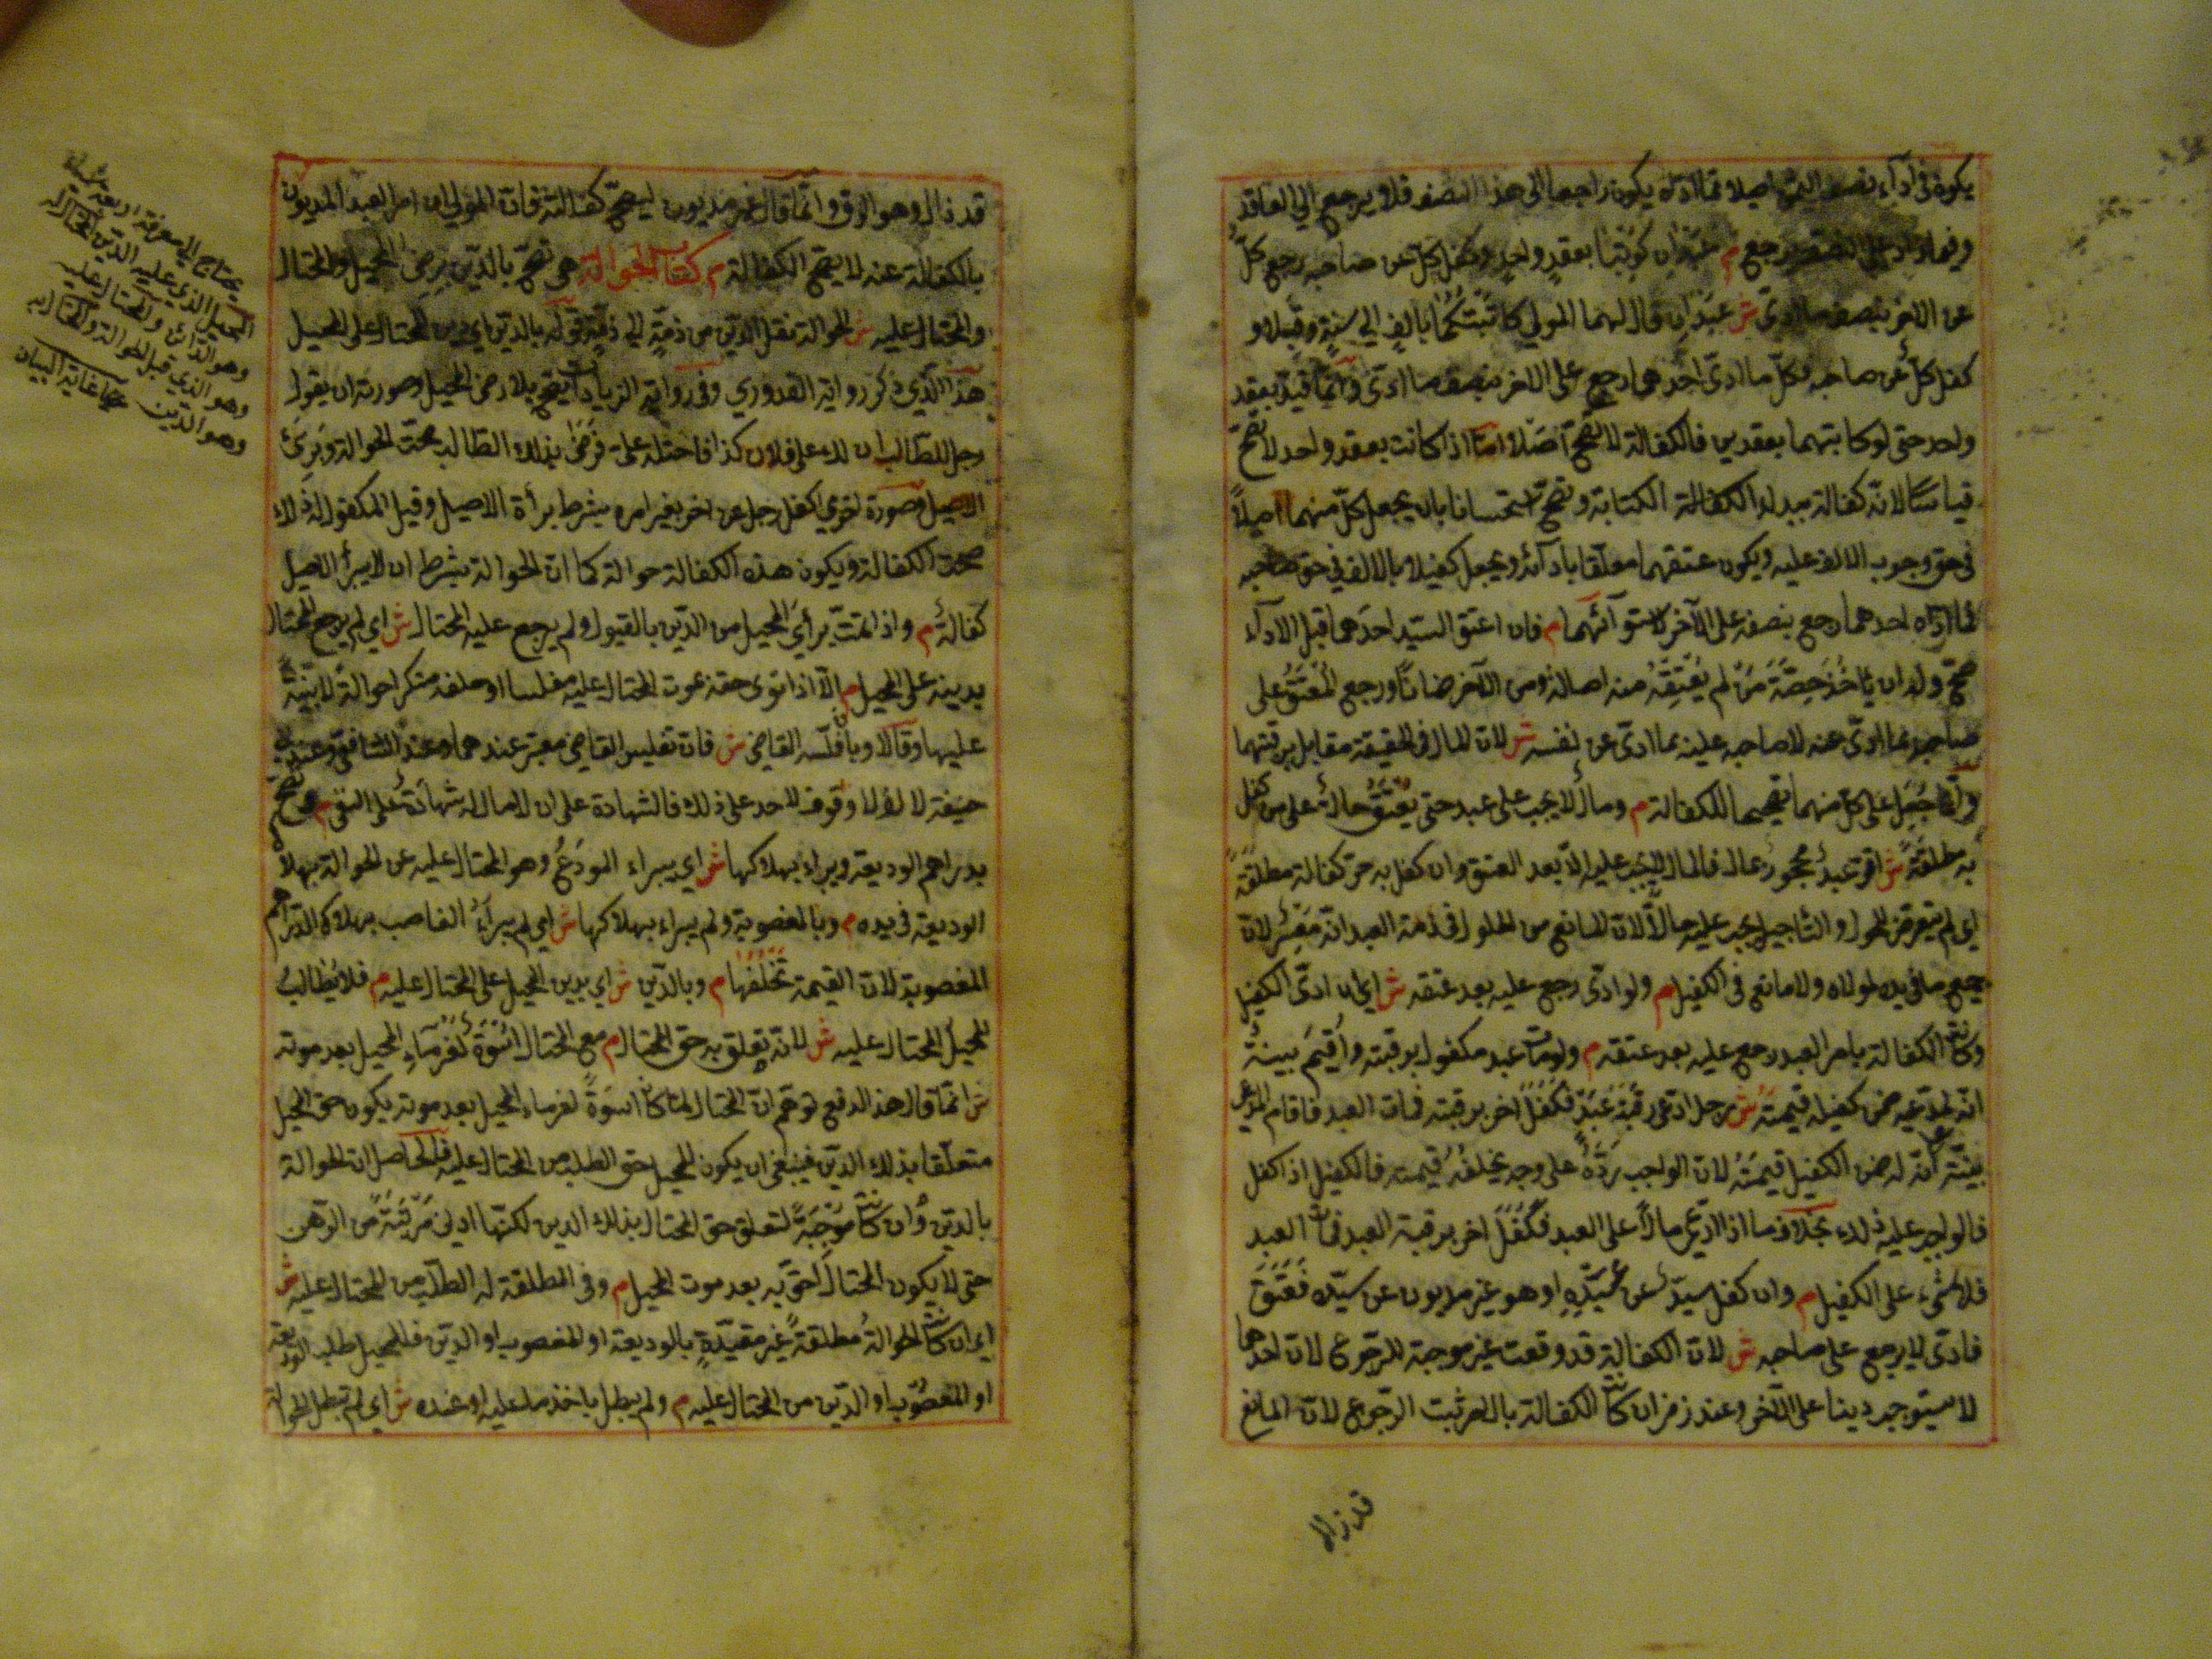 يكون فى اداء نصف الدين اصيلا فما اداه يكون راجعا الى هذا النصف فلا يرجع الى العاقد
وفيما زاد على النصف رجع م عبدان كوتبا بعقد واحد وكفل كل عن صاحبه رجع كل
عن الاخر بنصف ما ادى ش عبدان قال لهما المولى كاتبتكما بالف الى سنة وقبلا و
كفل كل عن صاحبه فكل ما ادى احدهما رجع على الاخر بنصف ما ادى وانما قيد بعقد
واحد حتى لو كاتبهما بعقدين فالكفالة لا تصح اصلا اما اذا كانت بعقد واحد لا تصح
قياسا لانه كفالة ببدل الكتابة وتصح استحسانا بان يجعل كل منهما اصيلا
فى حق وجوب الالف عليه ويكون عتقهما معلقا بادائه ويجعل كفيلا بالالف فى حق صاحبه
فما اداه احدهما رجع بنصفه على الآخر لاستوائهما م فان اعتق السيد احدهما قبل الاداء
صح وله ان ياخذ حصة من لم يعتقه منه اصالة ومن الآخر ضمانا ورجع المعتق على
صاحبه بما ادى عنه لا صاحبه عليه بما ادى عن نفسه ش لان المال فى الحقيقة مقابل برقبتهما
وانما جعل على كل منهما تصحيحا للكفالة م ومال لا يجب على عبد حتى يعتق حال على من كفل
به مطلقة ش اقر عبد محجور بمال فالمال لا يجب عليه الا بعد العتق وان كفل به حر كفالة مطلقة
اى لم يتعرض للحلول والتاجيل يجب عليه حالا لان المانع من الحلول فى ذمة العبد انه معسر لان
جميع ما فى يده لمولاه ولا مانع فى الكفيل م ولو ادى رجع عليه بعد عتقه ش اى ان ادى الكفيل
وكانت الكفالة بامر العبد رجع عليه بعد عتقه م ولو مات عبد مكفول برقبته واقيم بينة
انه لمدعيه ضمن كفيله قيمته ش رجل ادعى رقبة عبد فكفل اخر برقبته فمات العبد فاقام المدعى
بينة انه له ضمن الكفيل قيمته لان الواجب رده على وجه يخلفه قيمته فالكفيل اذا كفل
فالواجب عليه ذلك بخلاف ما اذا ادعى مالا على العبد فكفل اخر برقبة العبد فمات العبد
فلا شىء على الكفيل م وان كفل سيد عن عبده او هو غير مديون عن سيده فعتق
فادى لا يرجع على صاحبه ش لان الكفالة قد وقعت غير موجبة للرجوع لان احدهما
لا يستوجب دينا على الاخر وعند زفر ان كانت الكفالة بالامر ثبت الرجوع لان المانع
قد زال
قد زال وهو الرق وانما قال غير مديون ليصح كفالته فان المولى ان امر العبد المديون
بالكفالة عنه لا يصح الكفالة م كتاب الحوالة هى تصح بالدين برضى المحيل والمحتال
والمحتال عليه ش الحوالة نقل الدين من ذمة الى ذمة قوله بالدين اى دين المحتال على المحيل
هذا الذى ذكر رواية القدورى وفى رواية الزيادات يصح بلا رضى المحيل وصورته ان يقول
رجل للطالب ان لك على فلان كذا فاحتله على فرضى بذلك الطالب صحت الحوالة وبرئ
الاصيل وصورة اخرى كفل رجل عن اخر بغير امره بشرط براة الاصيل وقبل المكفول له ذلك
صحت الكفالة ويكون هذه الكفالة حوالة كما ان الحوالة بشرط ان لا يبرأ الاصيل
كفالة م واذا تمت برئ المحيل من الدين بالقبول ولم يرجع عليه المحتال ش اى لم يرجع المحتال
بدينه على المحيل م الا اذا توى حقه بموت المحتال عليه مفلسا او حلفه منكرا حوالة لا بينة
عليها وقالا وبان فلسه القاضى ش فان تفليس القاضى معتبر عندهما وعند الشافعى وعند ابى
حنيفة لا لانه لا وقوف لاحد على ذلك فالشهادة على ان لا مال له شهادة على النفى م وتصح
بدراهم الوديعة ويبراء بهلاكها ش اى يبراء المودع وهو المحتال عليه عن الحوالة بهلاك
الوديعة فى يده م وبالمغصوبة ولم يبراء بهلاكها ش اى لم يبراء الغاصب بهلاك الدراهم
المغصوبة لان القيمة تخلفها م وبالدين ش اى بدين المحيل على المحتال عليه م فلا يطالب
المحيل المحتال عليه ش لانه تعلق به حق المحتال م مع المحتال اسوة لغرماء المحيل بعد موته
ش انما قال هذا الدفع توهم ان المحتال لما كان اسوة لغرماء المحيل بعد موته يكون حق المحيل
متعلقا بذلك الدين فينبغى ان يكون للمحيل حق الطلب من المحتال عليه فالحاصل ان الحوالة
بالدين وان كانت موجبة لتعلق حق المحتال بذلك الدين لكنها ادنى مرتبة من الرهن
حتى لا يكون المحتال احق به بعد موت المحيل م وفى المطلقة له الطلب من المحتال عليه ش
اى ان كانت الحوالة مطلقة غير مقيدة بالوديعة او المغصوب او الدين فللمحيل طلب الوديعة
او المغصوب او الدين من المحتال عليه م ولم يبطل باخذ ما عليه او عنده ش اى لم تبطل الحوالة
يحتاج الى معرفة اربعة اشياء
المحيل الذى عليه الدين المحتال له
وهو الدائن والمحتال عليه
وهو الذى قبل الحوالة والمحتال به
وهو الدين غاية البيان